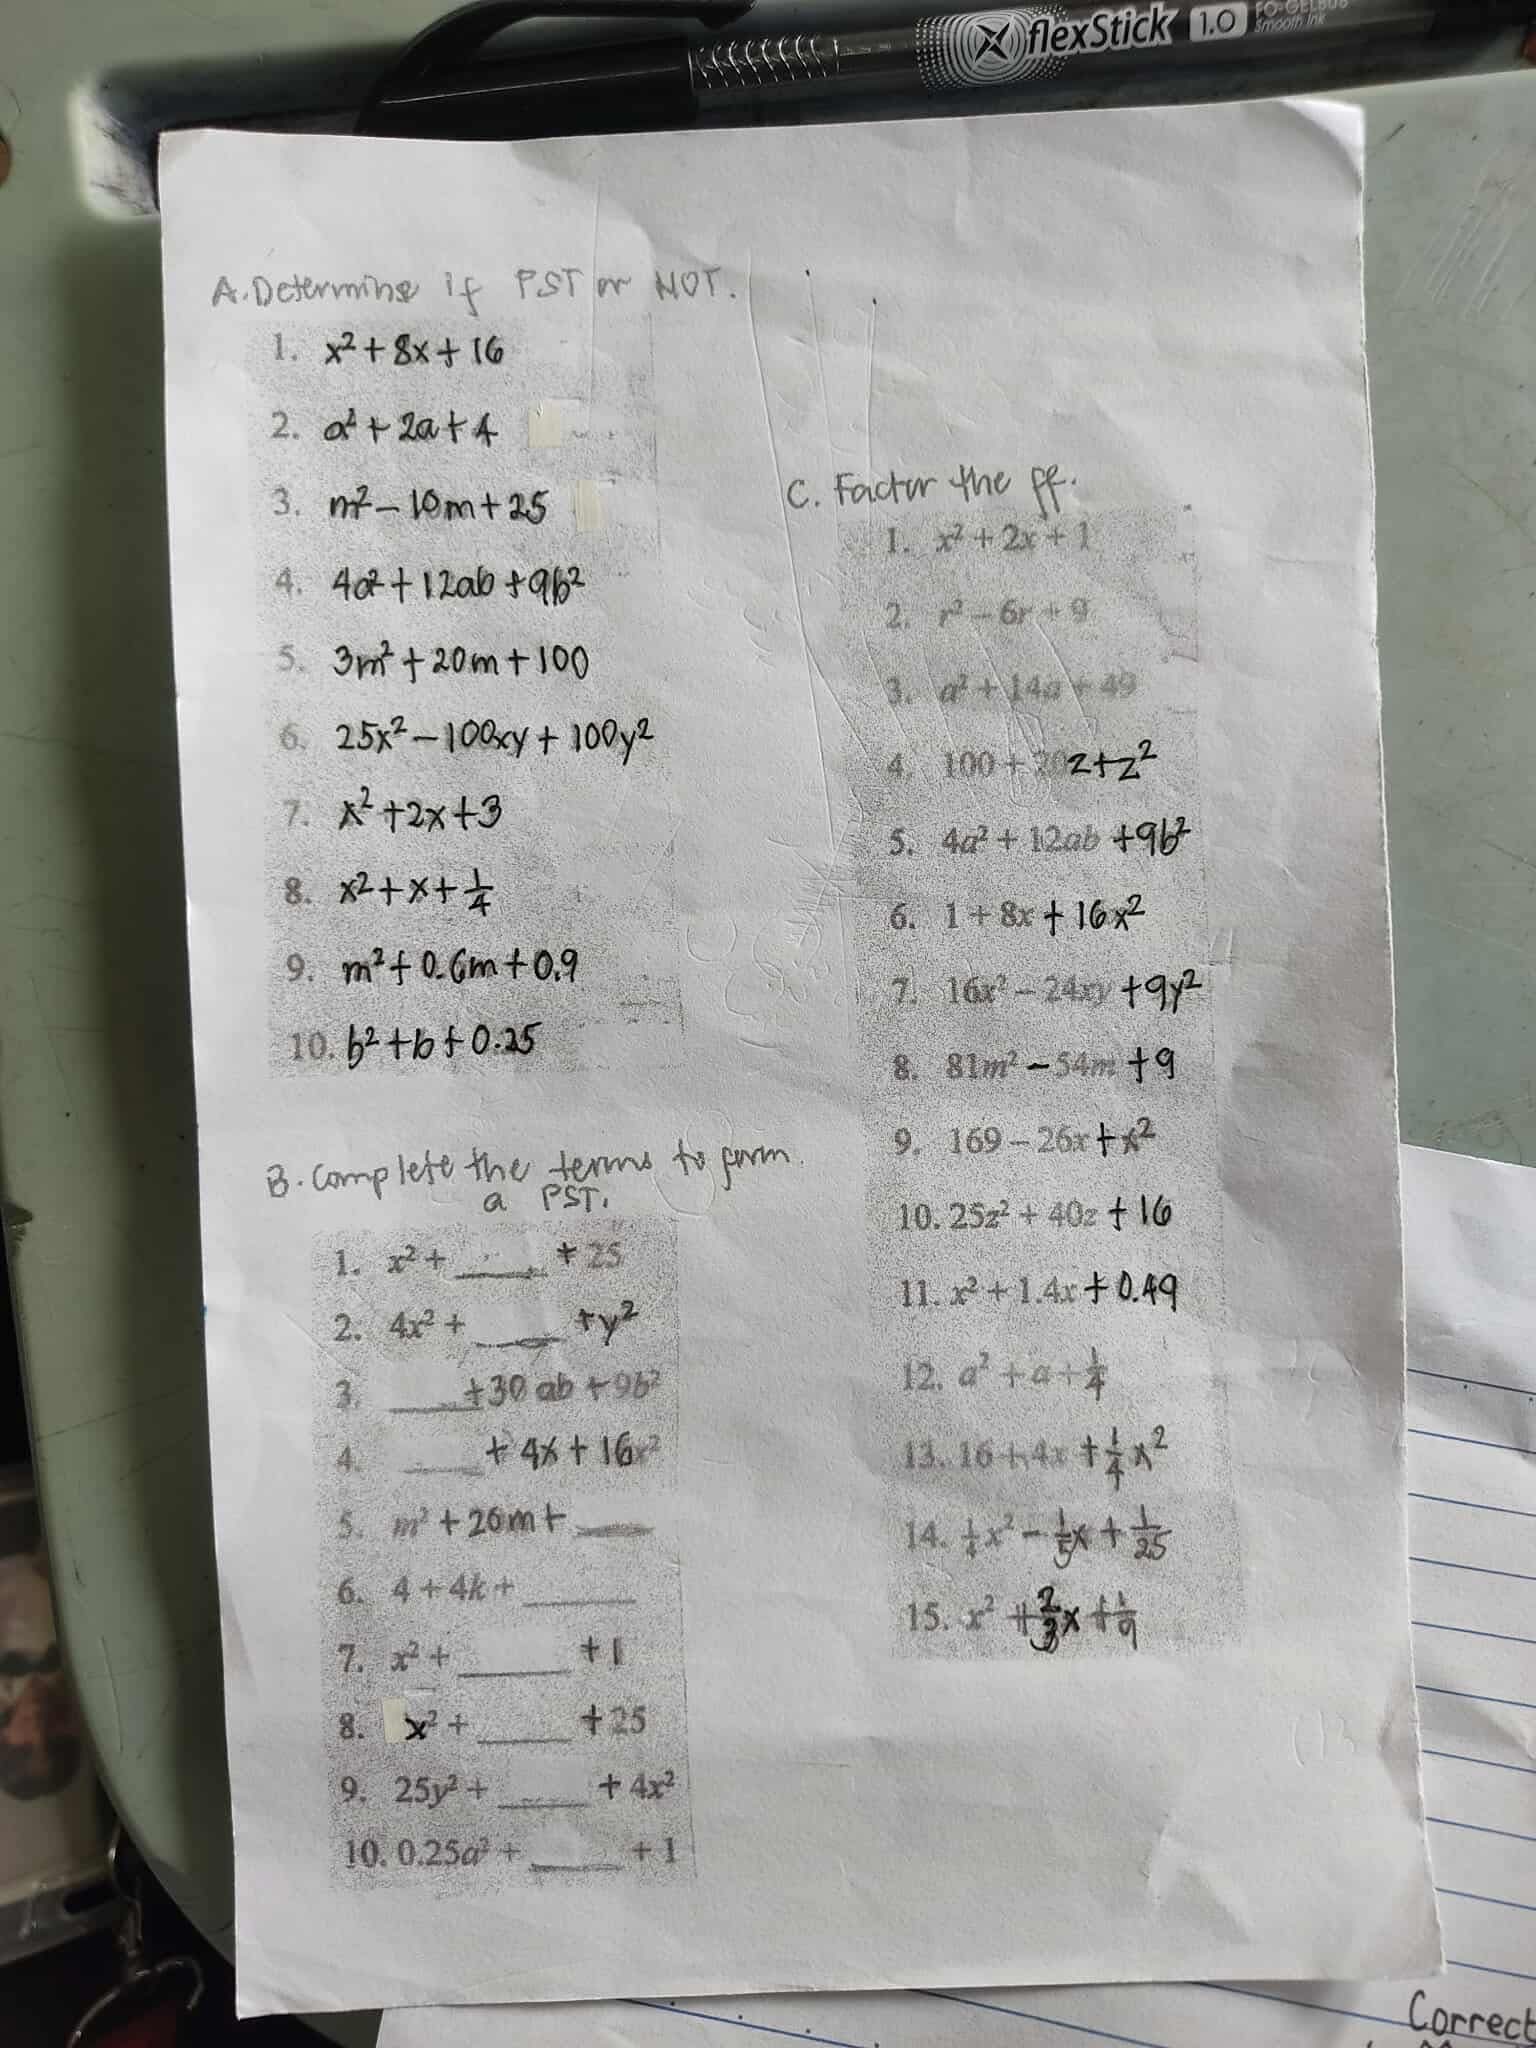 flexStick 1.0 FO-GELB08
Smooth Ink
A. Determine if PST or NOT.
1. x² + 8x + 16
2. a² + 2a + 4
3. m² – 10m + 25
4. 4a² + 12ab + 9b²
5. 3m² + 20m + 100
6. 25x² – 100xy + 100y²
7. x² + 2x + 3
8. x² + x + 1/4
9. m² + 0.6m + 0.9
10. b² + b + 0.25
B. Complete the terms to form
a PST.
1. x² + ____ + 25
2. 4x² + ____ + y²
3. ____ + 30ab + 9b²
4. ____ + 4x + 16x²
5. m² + 26m + ____
6. 4 + 4k + ____
7. x² + ____ + 1
8. x² + ____ + 25
9. 25y² + ____ + 4x²
10. 0.25a² + ____ + 1
C. Factor the ff.
1. x² + 2x + 1
2. r² – 6r + 9
3. a² + 14a + 49
4. 100 + 20z + z²
5. 4a² + 12ab + 9b²
6. 1 + 8x + 16x²
7. 16x² – 24xy + 9y²
8. 81m² – 54m + 9
9. 169 – 26x + x²
10. 25z² + 40z + 16
11. x² + 1.4x + 0.49
12. a² + a + 1/4
13. 16 + 4x + 1/4 x²
14. 1/4 x² – 1/5 x + 1/25
15. x² + 2/3 x + 1/9
Correct